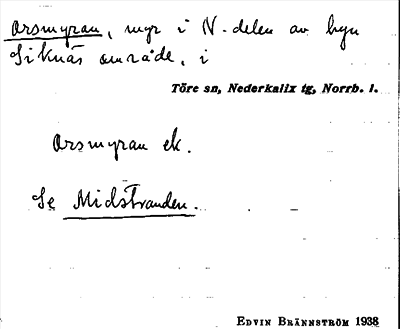 Orsmyran, myr i N. delen av byn
Siknäs område, i
Töre sn, Nederkalix tg, Norrb. l.
Orsmyran ek.
Se Midstranden.
EDVIN BRÄNNSTRÖM 1938